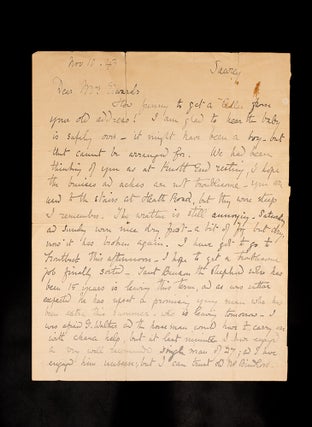 Nov 15. 43
Sawrey
Dear Mrs Edwards
How funny to get a from
your old address! I am glad to hear the baby
is safely over - it might have been a boy, but
that cannot be arranged for. We had been
thinking of you as at End resting; I hope
the bruises and aches are not troublesome - you are
used to the stairs at Heath Road, but they were steep
I remember. The weather is still annoying - Saturday
and Sunday were nice dry frost - a bit of fog but dry,
now it has broken again. I have got to go to
Troutbeck this afternoon - I hope to get a troublesome
job finally sorted - the Shepherd who has
been 15 years is leaving this term, and as was rather
expected he has upset a promising young man who has
been this summer - who is leaving tomorrow - I
was afraid G. Walker and the horseman would have to carry on
with chance help, but at last minute I have engaged
a well single man of 27; and I have
engaged him unseen; but I can trust old Mr